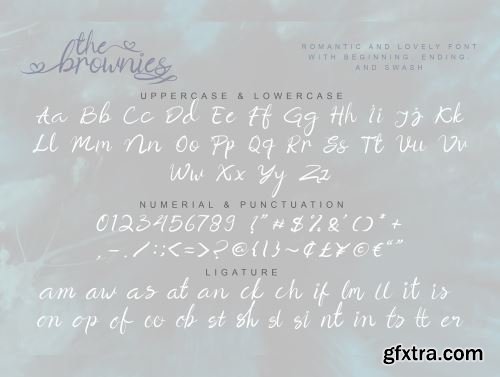 the
brownies
ROMANTIC AND LOVELY FONT
WITH BEGINNING, ENDING,
AND SWASH
UPPERCASE & LOWERCASE
Aa Bb Cc Dd Ee Ff Gg Hh Ii Jj Kk
Ll Mm Nn Oo Pp Qq Rr Ss Tt Uu Vv
Ww Xx Yy Zz
NUMERIAL & PUNCTUATION
0123456789 !"#$%&'()*+
,-./:;<=>?@{|}~¢£¥©€“”
LIGATURE
am aw as at an ck ch if lm ll it is
on op of oo ob st sh sl si nt in ts tt er
gfxtra.com